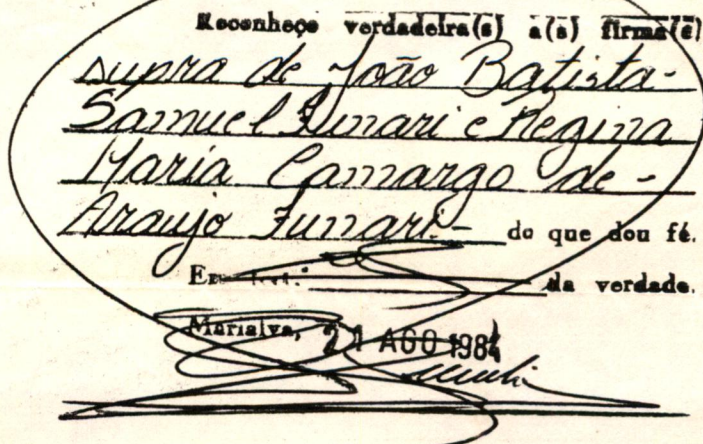 Reconheço verdadeira(s) a(s) firma(s)
supra de João Batista-
Samuel Funari e Regina
Maria Camargo de-
Araujo Funari- do que dou fé.
da verdade.
Marialva, 21 AGO 1984